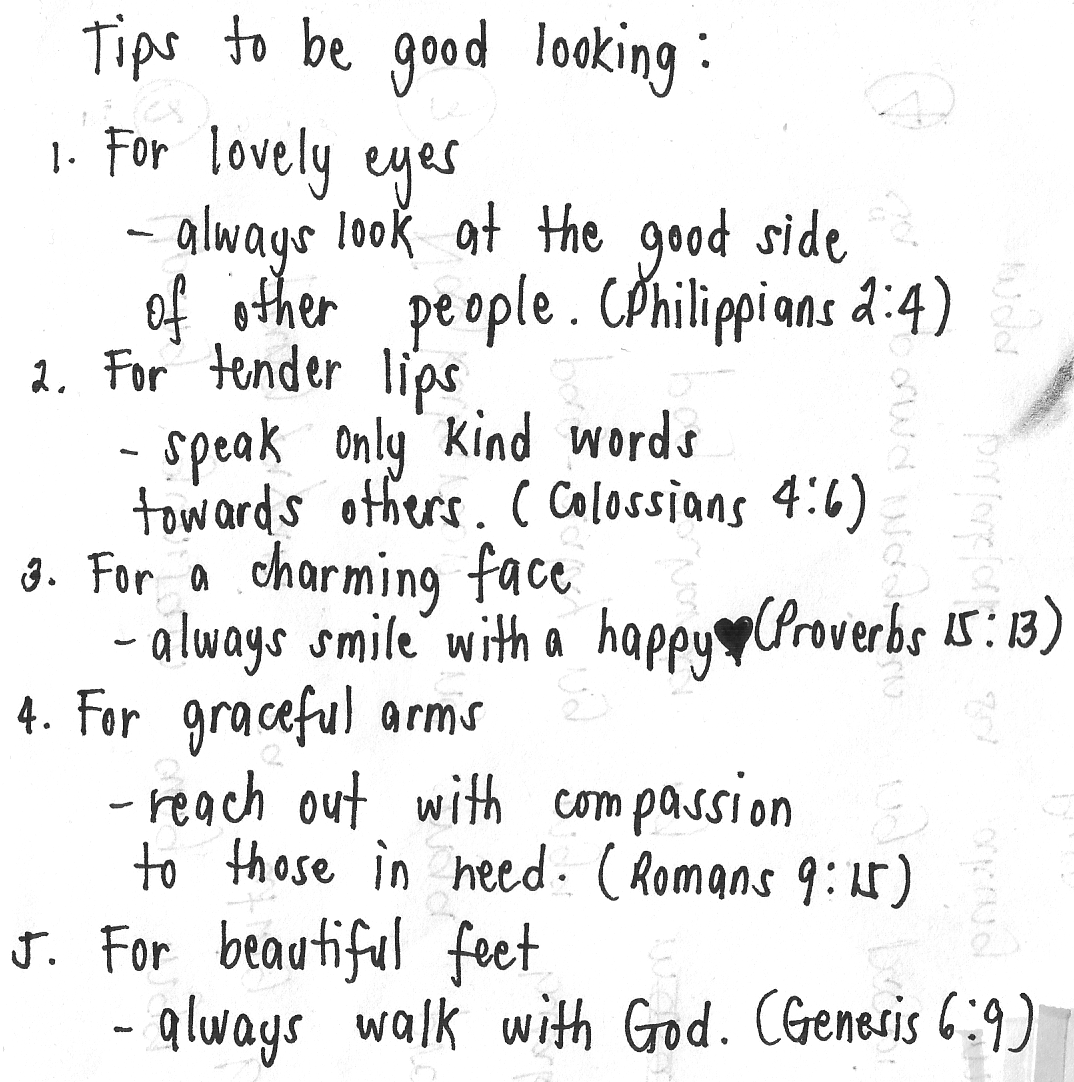 Tips to be good looking:
1. For lovely eyes
- always look at the good side
of other people. (Philippians 2:4)
2. For tender lips
- speak only kind words
towards others. (Colossians 4:6)
3. For a charming face
- always smile with a happy♥(Proverbs 15:13)
4. For graceful arms
- reach out with compassion
to those in need. (Romans 9:15)
5. For beautiful feet
- always walk with God. (Genesis 6:9)